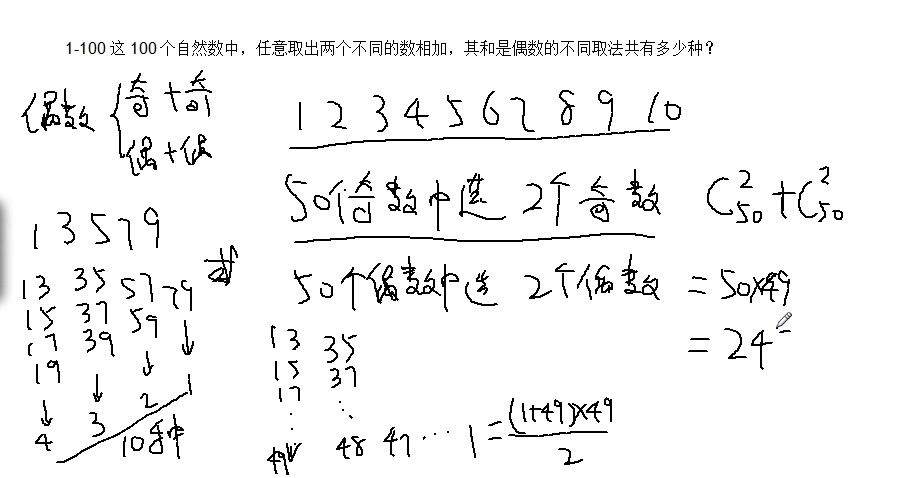 1-100 这 100 个自然数中，任意取出两个不同的数相加，其和是偶数的不同取法共有多少种？
偶数 { 奇+奇
偶+偶
1 2 3 4 5 6 7 8 9 10
50个奇数中选 2个奇数
C₅₀²+C₅₀²
1 3 5 7 9
50个偶数中选 2个偶数
=50×49
=24
13 35 57 79
15 37 59
17 39
19
4 3 2 1
10种
13 35
15 37
17
49 48 47 … 1 = (1+49)×49
2